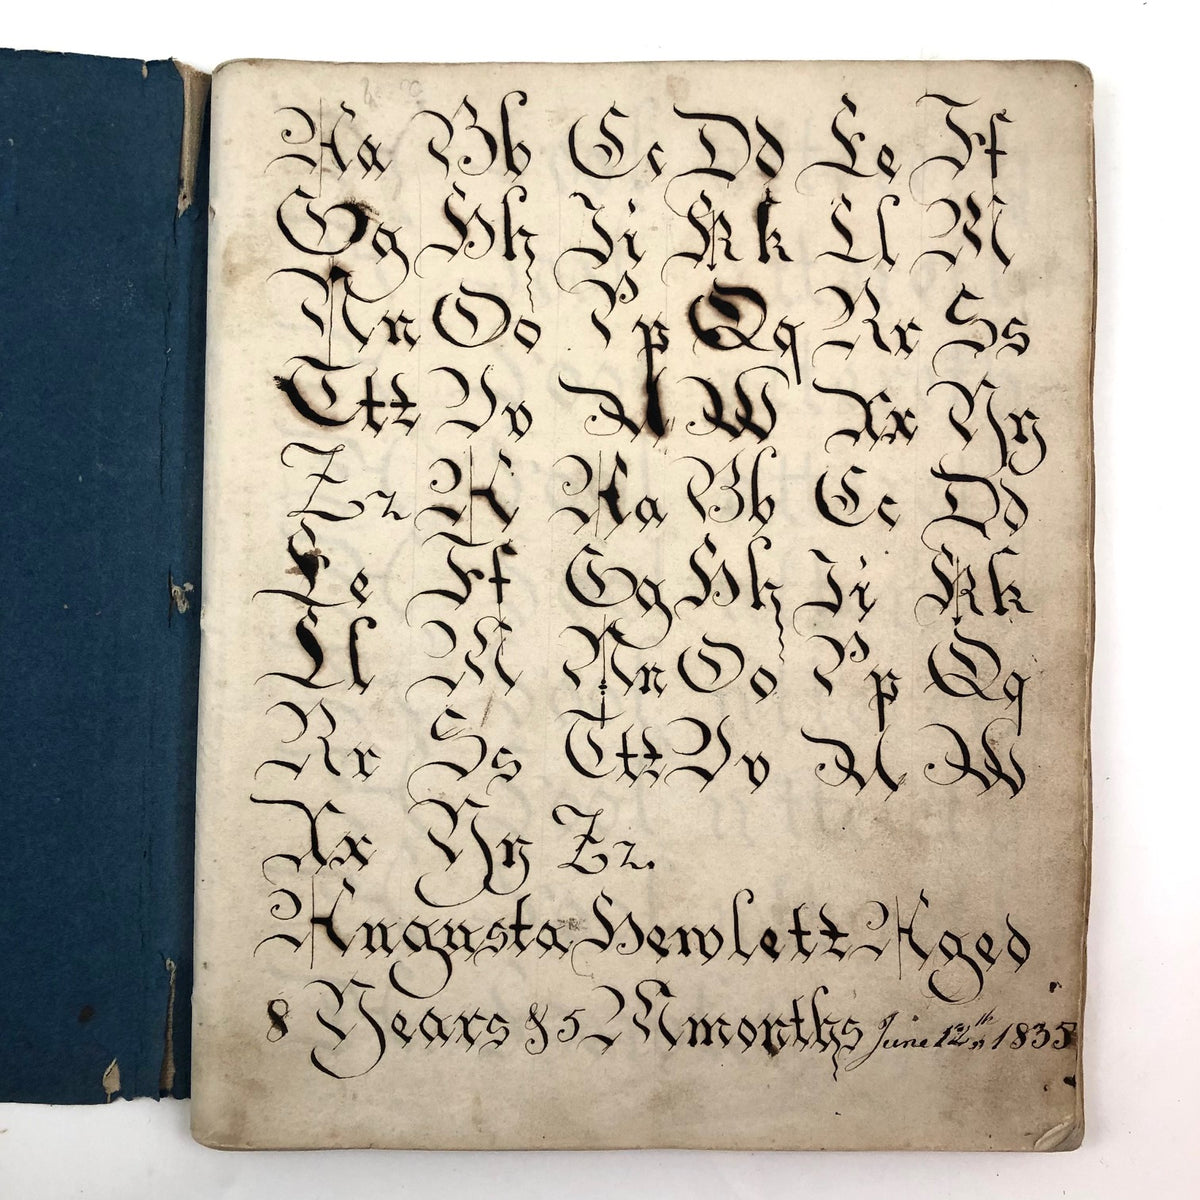 Aa Bb Cc Dd Ee Ff
Gg Hh Ii Kk Ll M
Nn Oo Pp Qq Rr Ss
Ttt Vv U W Xx Yy
Zz A Aa Bb Cc Dd
Ee Ff Gg Hh Ii Kk
Ll M Nn Oo Pp Qq
Rr Ss Ttt Vv U W
Xx Yy Zz.
Augusta Hewlett Aged
8 Years & 5 Mmonths June 12th 1835